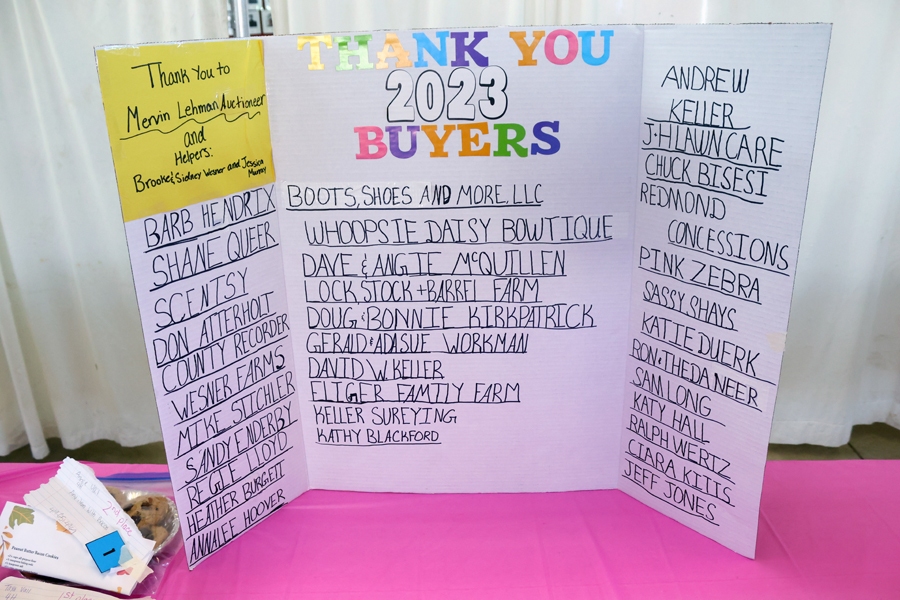 Thank You to
Mervin Lehman Auctioneer
and
Helpers:
Brooke & Sidney Wesner and Jessica
Murray
BARB HENDRIX
SHANE QUEER
SCENTSY
DON ATTERHOLT
COUNTY RECORDER
WESNER FARMS
MIKE STICHLER
SANDY ENDERBY
REGGIE LLOYD
HEATHER BURGETT
ANNALEE HOOVER
THANK YOU
2023
BUYERS
BOOTS, SHOES AND MORE, LLC
WHOOPSIE DAISY BOWTIQUE
DAVE & ANGIE McQUILLEN
LOCK STOCK + BARREL FARM
DOUG & BONNIE KIRKPATRICK
GERALD & ADASUE WORKMAN
DAVID W. KELLER
ELIGER FAMILY FARM
KELLER SUREYING
KATHY BLACKFORD
ANDREW
KELLER
J-H LAWN CARE
CHUCK BISESI
REDMOND
CONCESSIONS
PINK ZEBRA
SASSY SHAYS
KATIE DUERK
RON & THEDA NEER
SAM LONG
KATY HALL
RALPH WERTZ
CIARA KITTS
JEFF JONES
2nd place
1
Peanut Butter Bacon Cookies
1st